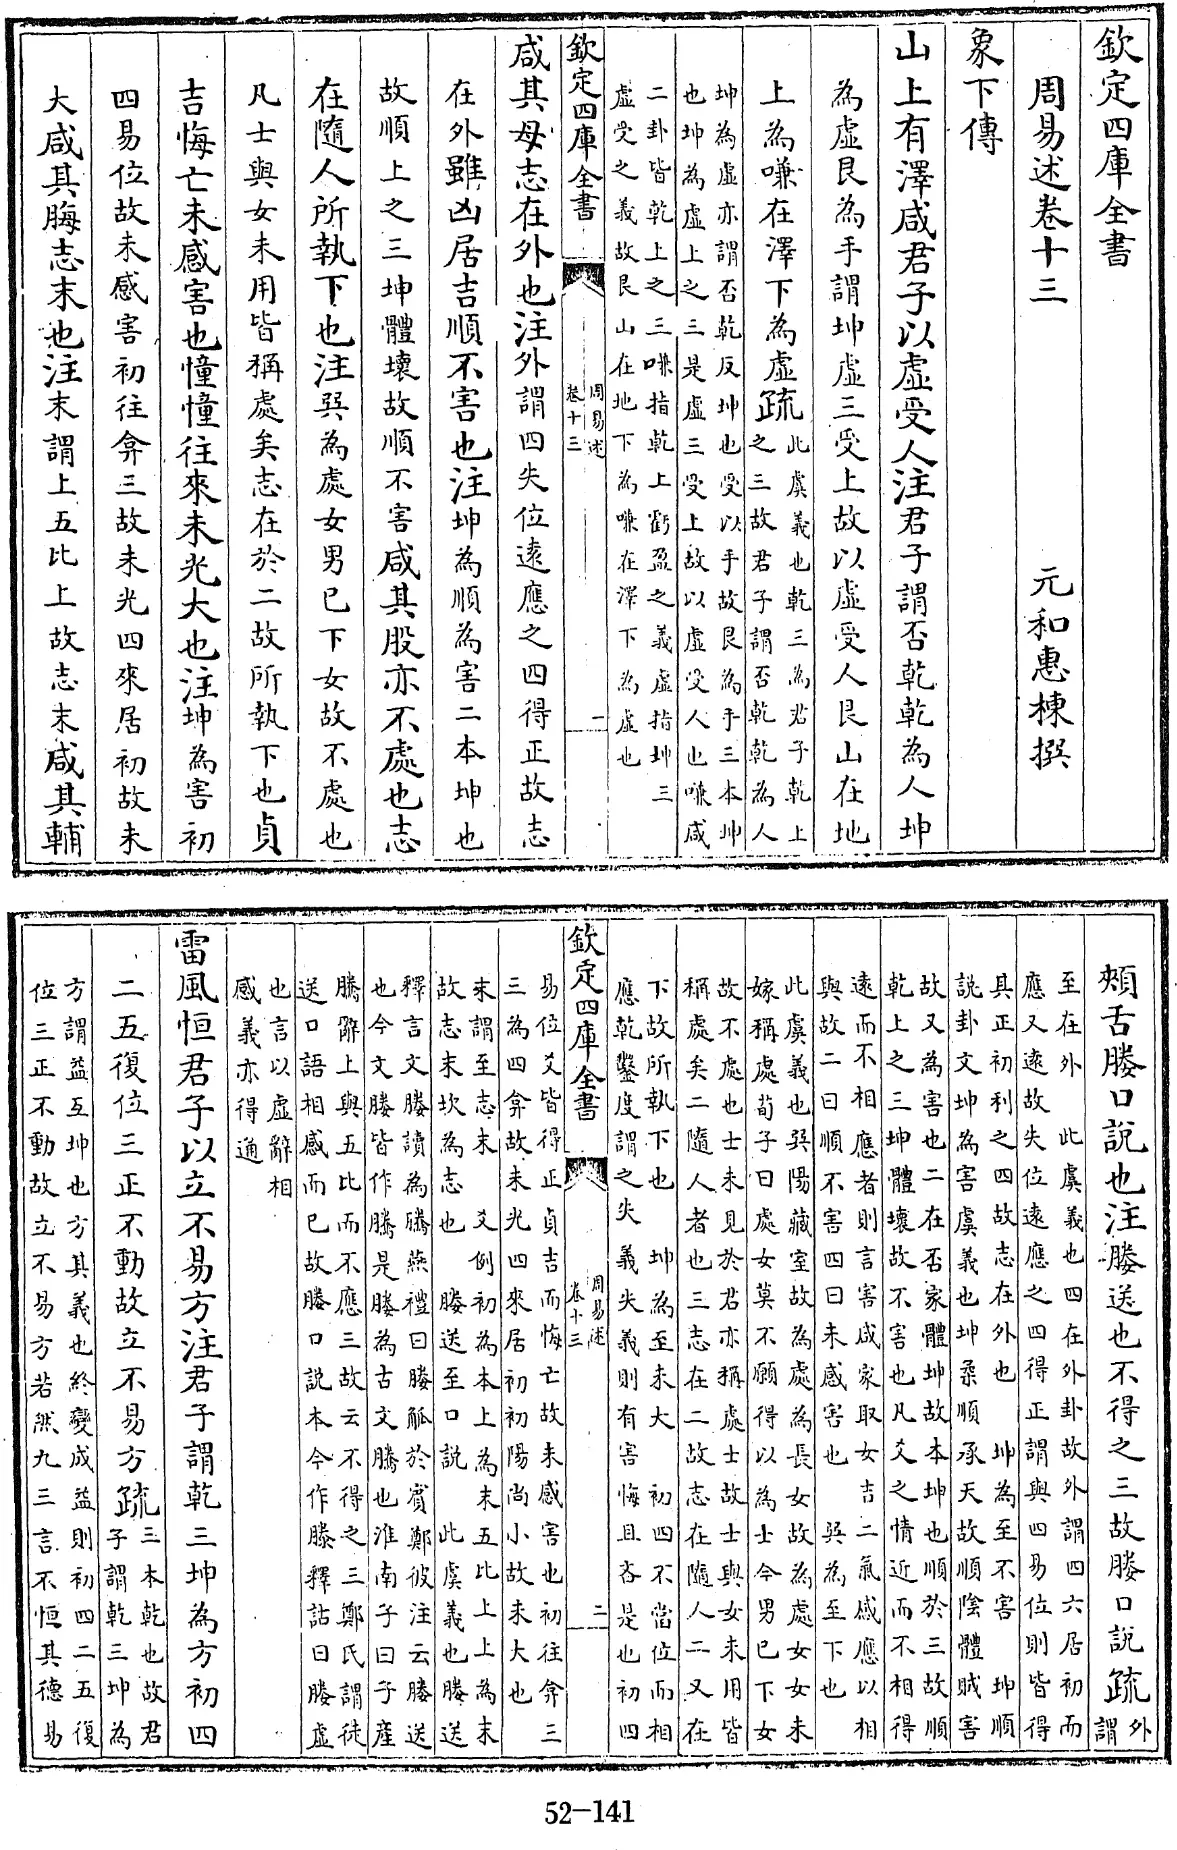 欽定四庫全書
周易述卷十三
元和惠棟撰
象下傳
山上有澤咸君子以虛受人注君子謂否乾乾為人坤
為虛艮為手謂坤虛三受上故以虛受人艮山在地
上為嗛在澤下為虛疏
此虞義也乾三為君子乾上
之三故君子謂否乾乾為人
坤為虛亦謂否乾反坤也受以手故艮為手三本坤
也坤為虛上之三是虛三受上故以虛受人也嗛咸
二卦皆乾上之三嗛指乾上虧盈之義虛指坤三
虛受之義故艮山在地下為嗛在澤下為虛也
欽定四庫全書
周易述
卷十三
一
咸其母志在外也注外謂四失位遠應之四得正故志
在外雖凶居吉順不害也注坤為順為害二本坤也
故順上之三坤體壞故順不害咸其股亦不處也志
在隨人所執下也注巽為處女男已下女故不處也
凡士與女未用皆稱處矣志在於二故所執下也貞
吉悔亡未感害也憧憧往來未光大也注坤為害初
四易位故未感害初往弇三故未光四來居初故未
大咸其脢志末也注末謂上五比上故志末咸其輔
頰舌媵口說也注媵送也不得之三故媵口說疏
外
謂
至在外　此虞義也四在外卦故外謂四六居初而
應又遠故失位遠應之四得正謂與四易位則皆得
其正初利之四故志在外也　坤為至不害　坤順
說卦文坤為害虞義也坤柔順承天故順陰體賊害
故又為害也二在否家體坤故本坤也順於三故順
乾上之三坤體壞故不害也凡爻之情近而不相得
遠而不相應者則言害咸家取女吉二氣感應以相
與故二曰順不害四曰未感害也　巽為至下也
此虞義也巽陽藏室故為處為長女故為處女女未
嫁稱處荀子曰處女莫不願得以為士今男已下女
故不處也士未見於君亦稱處士故士與女未用皆
稱處矣二隨人者也三志在二故志在隨人二又在
下故所執下也　坤為至未大　初四不當位而相
應乾鑿度謂之失義失義則有害悔且吝是也初四
欽定四庫全書
周易述
卷十三
二
易位爻皆得正貞吉而悔亡故未感害也初往弇三
三為四弇故未光四來居初初陽尚小故未大也
末謂至志末　爻例初為本上為末五比上上為末
故志末坎為志也　媵送至口說　此虞義也媵送
釋言文媵讀為騰燕禮曰媵觚於賓鄭彼注云媵送
也今文媵皆作騰是媵為古文騰也淮南子曰子產
騰辭上與五比而不應三故云不得之三鄭氏謂徒
送口語相感而已故媵口說本今作滕釋詁曰媵虛
也言以虛辭相
感義亦得通
雷風恒君子以立不易方注君子謂乾三坤為方初四
二五復位三正不動故立不易方疏
三本乾也故君
子謂乾三坤為
方謂益互坤也方其義也終變成益則初四二五復
位三正不動故立不易方若然九三言不恒其德易
52-141